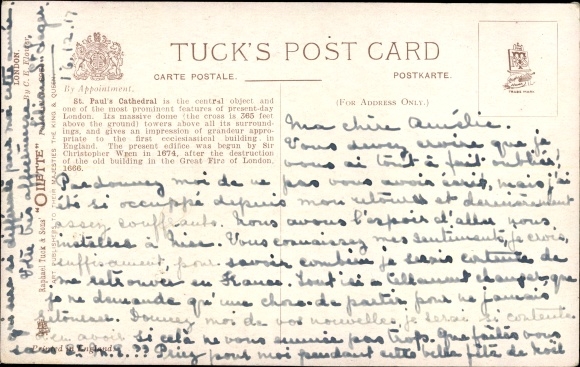 TUCK'S POST CARD
CARTE POSTALE.
POSTKARTE.
By Appointment.
(FOR ADDRESS ONLY.)
St. Paul's Cathedral is the central object and
one of the most prominent features of present-day
London. Its massive dome (the cross is 365 feet
above the ground) towers above all its surround-
ings, and gives an impression of grandeur appro-
priate to the first ecclesiastical building in
England. The present edifice was begun by Sir
Christopher Wren in 1674, after the destruction
of the old building in the Great Fire of London,
1666.
Raphael Tuck & Sons' "OILETTE"
LONDON.
Printed in England
16.12.17
Ma chère Amélie.
Vous devez croire que je
vous ai tout à fait oubliée,
Pardonnez moi de ne pas vous avoir écrit, mais j'ai
été si occupée depuis mon retour et dernièrement
assez souffrante. Nous avons l'espoir d'aller nous
installer à Nice. Vous connaissez mes sentiments, je crois,
suffisament, pour savoir combien je serais contente de
me retrouver en France. Tout ici a tellement changé que
je ne demande qu'une chose de partir pour ne jamais
retourner. Donnez moi de vos nouvelles je serai si contente
d'en avoir si celà ne vous ennuie pas trop. Que faites vous
Priez pour moi pendant cette belle fête de Noël
si difficile pour moi cette année
Votre très affectueuse